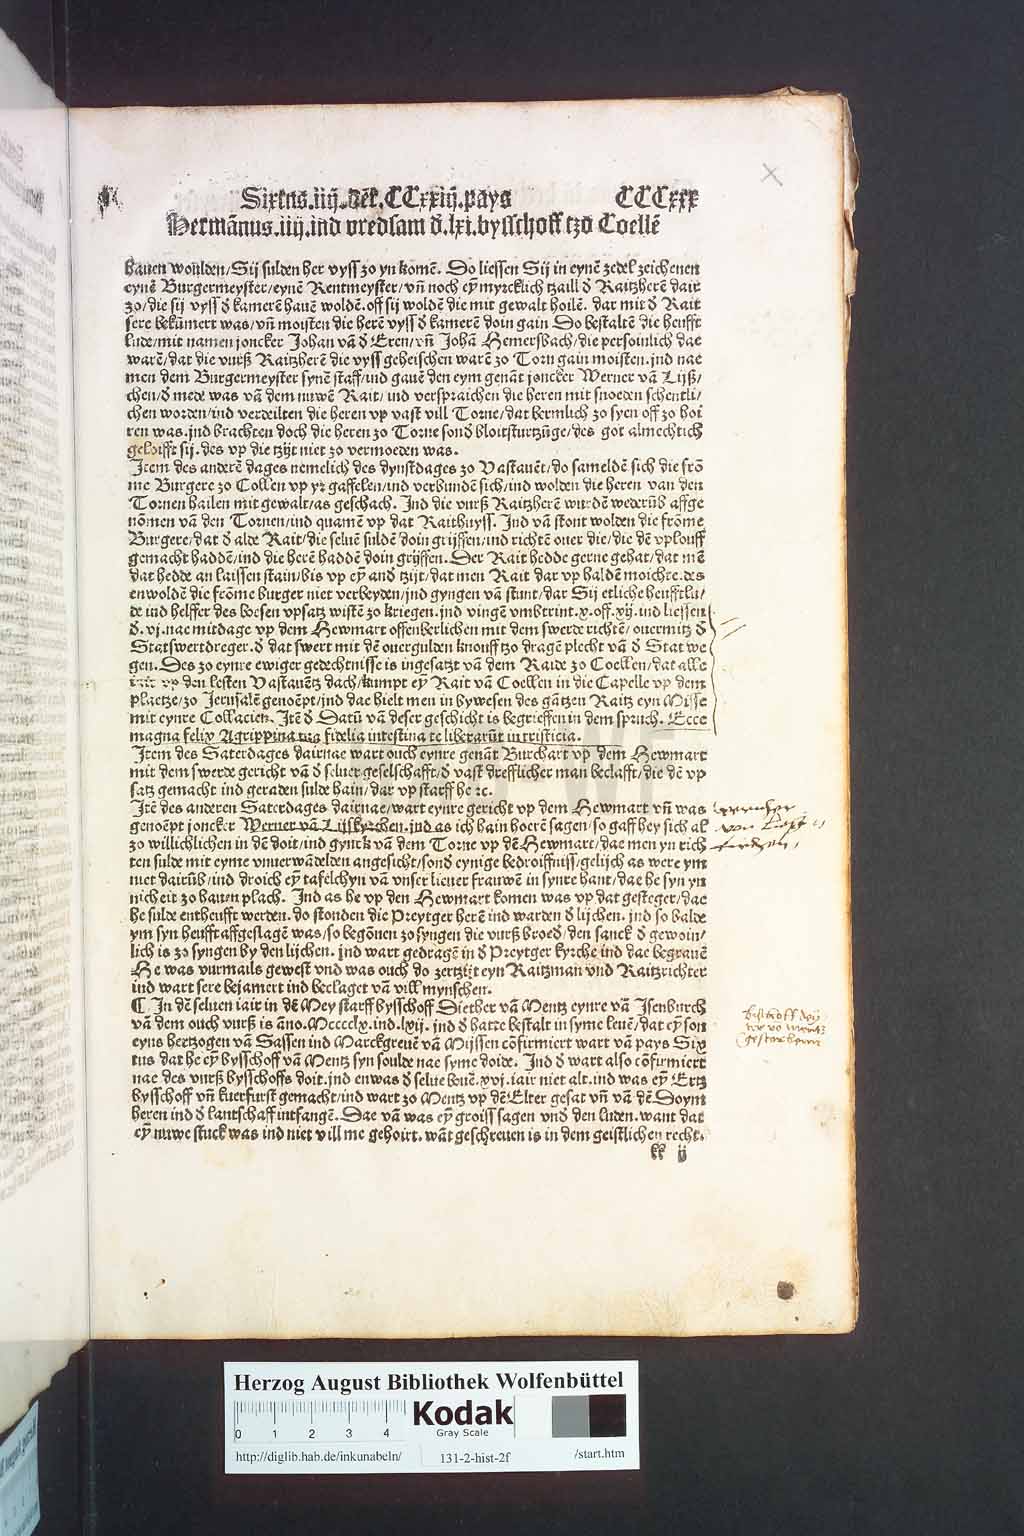 Sixtus.iiij.dēr.CCxxiij.pays CCCxxx
Hermānus.iiij.ind vredsam d̄.lxi.bysschoff tzo Coellē
hauen woulden/Sij sulden her vyss zo yn komē. Do liessen Sij in eynē zedel zeichenen
eynē Burgermeyster/eynē Rentmeyster/vn̄ noch eȳ myrcklich tzaill d̄ Raitzherē dair
zo/die sij vyss d̄ kamerē hauē woldē.off sij woldē die mit gewalt hoilē. dar mit d̄ Rait
sere bekūmert was/vn̄ moisten die herē vyss d̄ kamerē doin gain Do bestaltē die heufft
lude/mit namen joncker Johan vā d̄ Eren/vn̄ Johā Hemersbach/die persoinlich dae
warē/dat die vurß Raitzherē die vyss geheischen warē zo Torn gain moisten.jnd nae
men dem Burgermeyster synē staff/ind gauē den eym genāt joncker Werner vā Lijß/
chen/d̄ mede was vā dem nuwē Rait/ind verspraichen die heren mit snoeden schentli/
chen worden/ind verdeilten die heren vp vast vill Torne/dat bermlich zo syen off zo hoi
ren was.jnd brachten doch die heren zo Torne sond̄ bloitsturtzūge/des got almechtich
geloifft sij.des vp die tzijt niet zo vermoeden was.
Item des anderē dages nemelich des dynstdages zo Vastauēt/do sameldē sich die frō
me Burgere zo Collen vp yr gaffelen/ind verbundē sich/ind wolden die heren van den
Tornen hailen mit gewalt/as geschach. Ind die vurß Raitzherē wurdē wederūb affge
nōmen vā den Tornen/ind quamē vp dat Raithuyss. Ind vā stont wolden die frōme
Burgere/dat d̄ alde Rait/die seluē suldē doin grijffen/ind richtē ouer die/die dē vplouff
gemacht haddē/ind die herē haddē doin grijffen. Der Rait hedde gerne gehat/dat mē
dat hedde an laissen stain/bis vp eȳ and̄ tzijt/dat men Rait dar vp haldē moichte.des
enwoldē die frōme burger niet verbeyden/jnd gyngen vā stunt/dar Sij etliche heufftlu/
de ind helffer des boesen vpsatz wistē zo kriegen.jnd vingē vmbtrint.x.off.xij.ind liessen
d̄.vj.nae mitdage vp dem Hewmart offenberlichen mit dem swerde richtē/ouermitz d̄
Statswertdreger.d̄ dat swert mit dē ouergulden knouff tzo dragē plecht vā d̄ Stat we
gen. Des zo eynre ewiger gedechtnisse is ingesatzt vā dem Raide zo Coellen/dat alle
iair vp den lesten Vastauētz dach/kumpt eȳ Rait vā Coellen in die Capelle vp dem
plaetze/zo Jerusalē genoēpt/jnd dae hielt men in bywesen des gātzen Raitz eyn Misse
mit eynre Collacien. Itē d̄ Datū vā deser geschicht is begrieffen in dem spruch. Ecce
magna felix Agrippina tua fidelia intestina te liberarūt in tristicia.
Item des Saterdages dairnae wart ouch eynre genāt Burchart vp dem Hewmart
mit dem swerde gericht vā d̄ seluer geselschafft/d̄ vast drefflicher man beclafft/die dē vp
satz gemacht ind geraden sulde hain/dar vp starff he ꝛc.
Itē des anderen Saterdages dairnae/wart eynre gericht vp dem Hewmart vn̄ was
genoēpt joncker Werner vā Lijskyrchen.ind as ich hain hoerē sagen/so gaff hey sich al
zo willichlichen in dē doit/ind gynck vā dem Torne vp dē Hewmart/dae men yn rich
ten sulde mit eyme vnuerwādelden angesicht/sond̄ eynige bedroiffniss/gelijch as were ym
niet dairūb/ind droich eȳ tafelchyn vā vnser lieuer frauwē in synre hant/dae he syn yn
nicheit zo hauen plach. Ind as he vp den Hewmart komen was vp dat gesteger/dae
he sulde entheufft werden.do stonden die Preytger herē ind warden d̄ lijchen.jnd so balde
ym syn heufft affgeslagē was/so begōnen zo syngen die vurß broed̄/den sanck d̄ gewoin/
lich is zo syngen by den lijchen. jnd wart gedragē in d̄ Preytger kyrche ind dae begrauē
He was vurmails gewest vnd was ouch do zertzijt eyn Raitzman vnd Raitzrichter
ind wart sere bejamert ind beclaget vā vill mynschen.
¶ In dē seluen iair in dē Mey starff bysschoff Diether vā Mentz eynre vā Isenburch
vā dem ouch vurß is āno.Mcccclx.ind.lxij. jnd d̄ hatte bestalt in syme leuē/dat eȳ son
eyns hertzogen vā Sassen ind Marckgreuē vā Mijssen cōfirmiert wart vā pays Six
tus dat he eȳ bysschoff vā Mentz syn soulde nae syme doide. Ind d̄ wart also cōfirmiert
nae des vurß bysschoffs doit.jnd enwas d̄ selue bouē.xvj.iair niet alt.ind was eȳ Ertz
bysschoff vn̄ kuerfurst gemacht/ind wart zo Mentz vp dē Elter gesat vn̄ vā dē Doym
heren ind d̄ lantschaff intfangē. Dae vā was eȳ groiss sagen vnd̄ den luden.want dat
eȳ nuwe stuck was ind niet vill me gehoirt.wāt geschreuen is in dem geistlichen recht.
kk ij
von
bischoff
vo mentz
gestorbenn
Herzog August Bibliothek Wolfenbüttel
0 1 2 3 4
Kodak
Gray Scale
http://diglib.hab.de/inkunabeln/ 131-2-hist-2f /start.htm